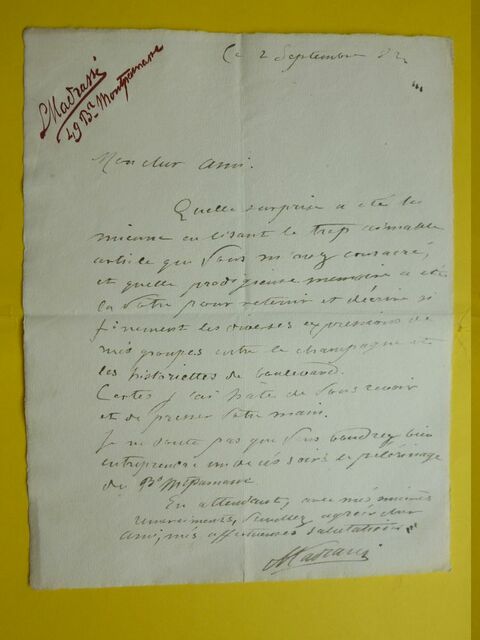 LMadrassi
49 Bd Montparnasse
Ce 2 Septembre 82
Mon cher Ami.
Quelle surprise a été la
mienne en lisant le trop aimable
article que vous m'avez consacré,
et quelle prodigieuse memoire a été
la votre pour retenir et décrire si
finement les diverses expressions de
mes groupes entre le champagne et
les historiettes de boulevard.
Certes j'ai hâte de vous revoir
et de presser votre main.
Je ne doute pas que vous voudrez bien
entreprendre un de ces soirs le pélerinage
du Bd Mtparnasse
En attendant, avec mes
remerciments, veuillez agréer cher
ami, mes affectueuses salutations
LMadrassi